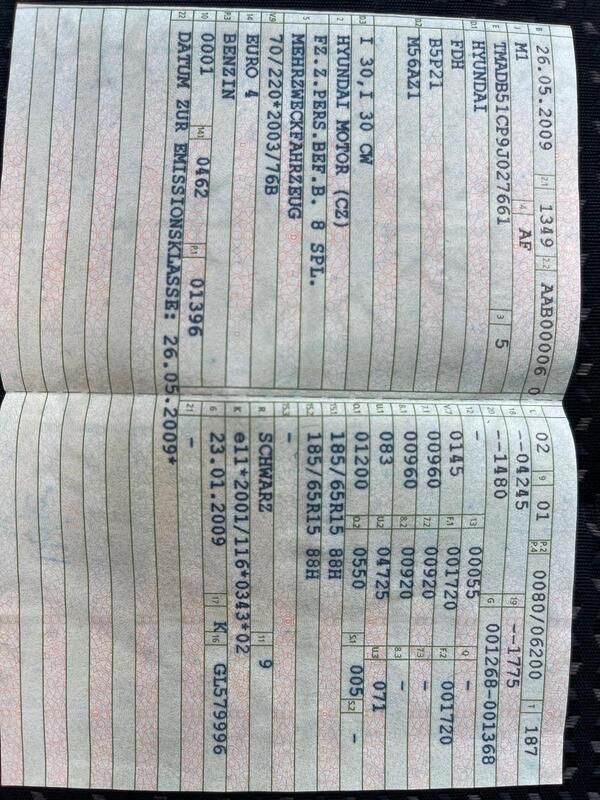 B 26.05.2009 2.1 1349 2.2 AAB00006 0
J M1 4 AF
E TMADB51CP9J027661 3 5
D.1 HYUNDAI
FDH
D.2 B5P21
M56AZ1
D.3 I 30,I 30 CW
2 HYUNDAI MOTOR (CZ)
5 FZ.Z.PERS.BEF.B. 8 SPL.
MEHRZWECKFAHRZEUG
V.9 70/220*2003/76B
14 EURO 4
P.3 BENZIN
10 0001 14.1 0462 P.1 01396
22 DATUM ZUR EMISSIONSKLASSE: 26.05.2009*
L 02 9 01 P.2 P.4 0080/06200 T 187
18 --04245 19 --1775
20 --1480 G 001268-001368
12 - 13 00055 Q -
V.7 0145 F.1 001720 F.2 001720
7.1 00960 7.2 00920 7.3 -
8.1 00960 8.2 00920 8.3 -
U.1 083 U.2 04725 U.3 071
O.1 01200 O.2 0550 S.1 005 S.2 -
15.1 185/65R15 88H
15.2 185/65R15 88H
15.3 -
R SCHWARZ 11 9
K e11*2001/116*0343*02
6 23.01.2009 17 K 16 GL579996
21 -